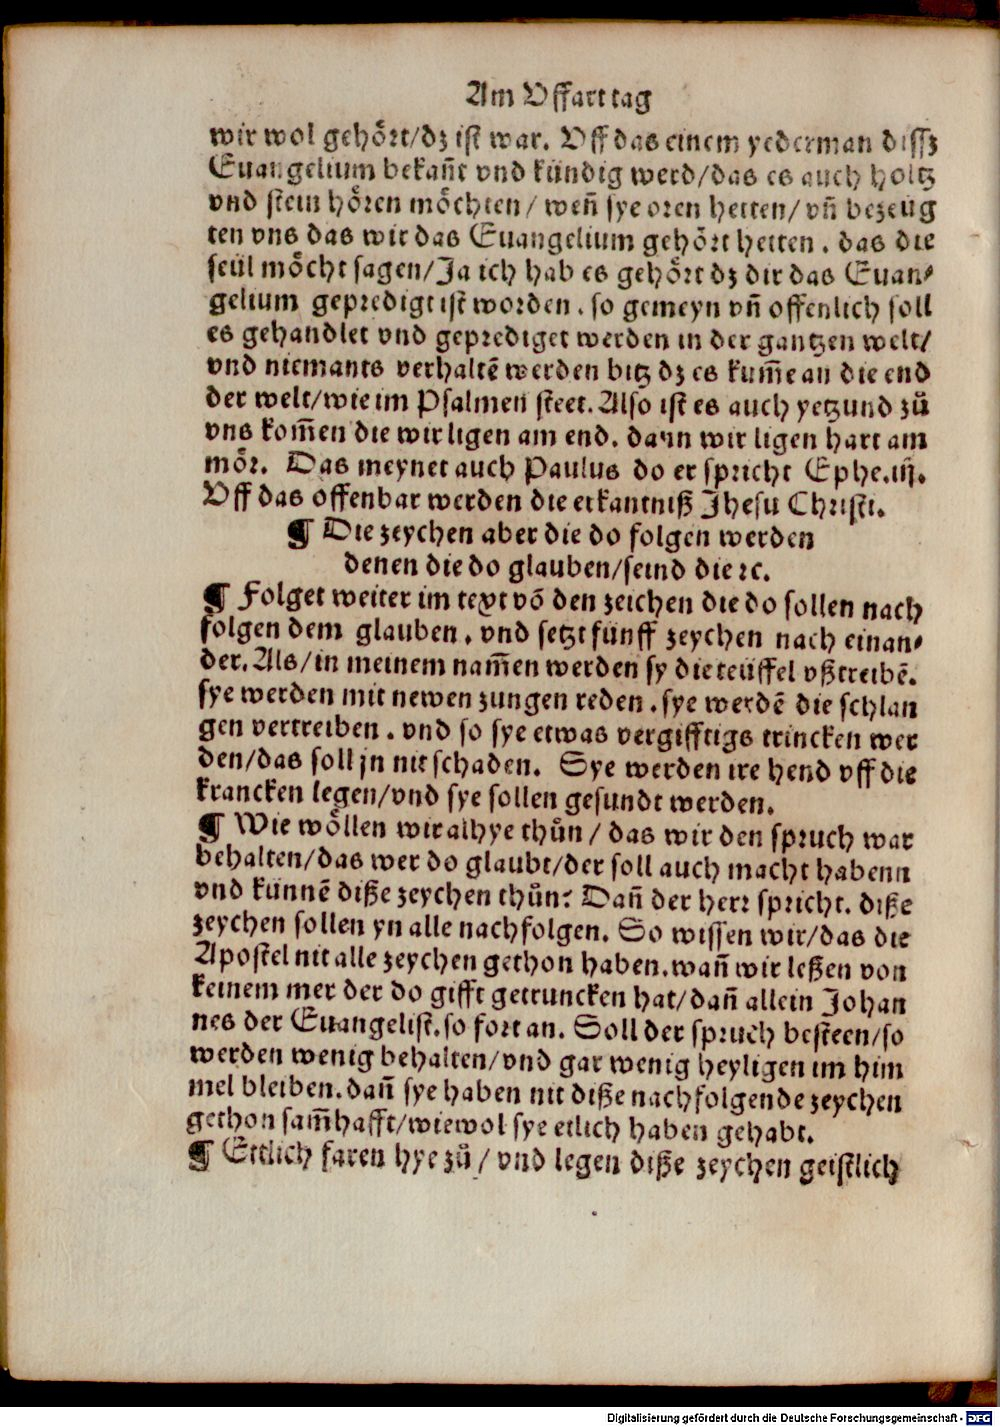 Am Vffart tag
wir wol gehoͤrt/dz ist war. Vff das einem yederman dissz
Euangelium bekañt vnd kündig werd/das es auch holtz
vnd stein hoͤren moͤchten/ weñ sye oren hetten/ vñ bezeüg
ten vns das wir das Euangelium gehoͤrt hetten. das die
seül moͤcht sagen/Ja ich hab es gehoͤrt dz dir das Euan⸗
gelium gepredigt ist worden. so gemeyn vñ offenlich soll
es gehandlet vnd geprediget werden in der gantzen welt/
vnd niemants verhaltẽ werden bitz dz es kum̃e an die end
der welt/wie im Psalmen steet. Also ist es auch yetzund zů
vns kom̃en die wir ligen am end. dann wir ligen hart am
moͤr. Das meynet auch Paulus do er spricht Ephe.iiȷ.
Vff das offenbar werden die erkantniß Jhesu Christi.
¶ Die zeychen aber die do folgen werden
denen die do glauben/seind die ꝛc.
¶ Folget weiter im text võ den zeichen die do sollen nach
folgen dem glauben. vnd setzt fünff zeychen nach einan⸗
der. Als/in meinem nam̃en werden sy die teüffel vßtreibẽ.
sye werden mit newen zungen reden. sye werdẽ die schlan
gen vertreiben. vnd so sye etwas vergifftigs trincken wer
den/das soll jn nit schaden. Sye werden ire hend vff die
krancken legen/vnd sye sollen gesundt werden.
¶ Wie woͤllen wir alhye thůn/ das wir den spruch war
behalten/das wer do glaubt/der soll auch macht habenn
vnd künnẽ diße zeychen thůn? Dañ der herr spricht. diße
zeychen sollen yn alle nachfolgen. So wissen wir/das die
Apostel nit alle zeychen gethon haben. wañ wir leßen von
keinem mer der do gifft getruncken hat/dañ allein Johan
nes der Euangelist. so fort an. Soll der spruch besteen/so
werden wenig behalten/vnd gar wenig heyligen im him
mel bleiben. dañ sye haben nit diße nachfolgende zeychen
gethon sam̃hafft/wiewol sye etlich haben gehabt.
¶ Ettlich faren hye zů/ vnd legen diße zeychen geistlich
Digitalisierung gefördert durch die Deutsche Forschungsgemeinschaft - DFG